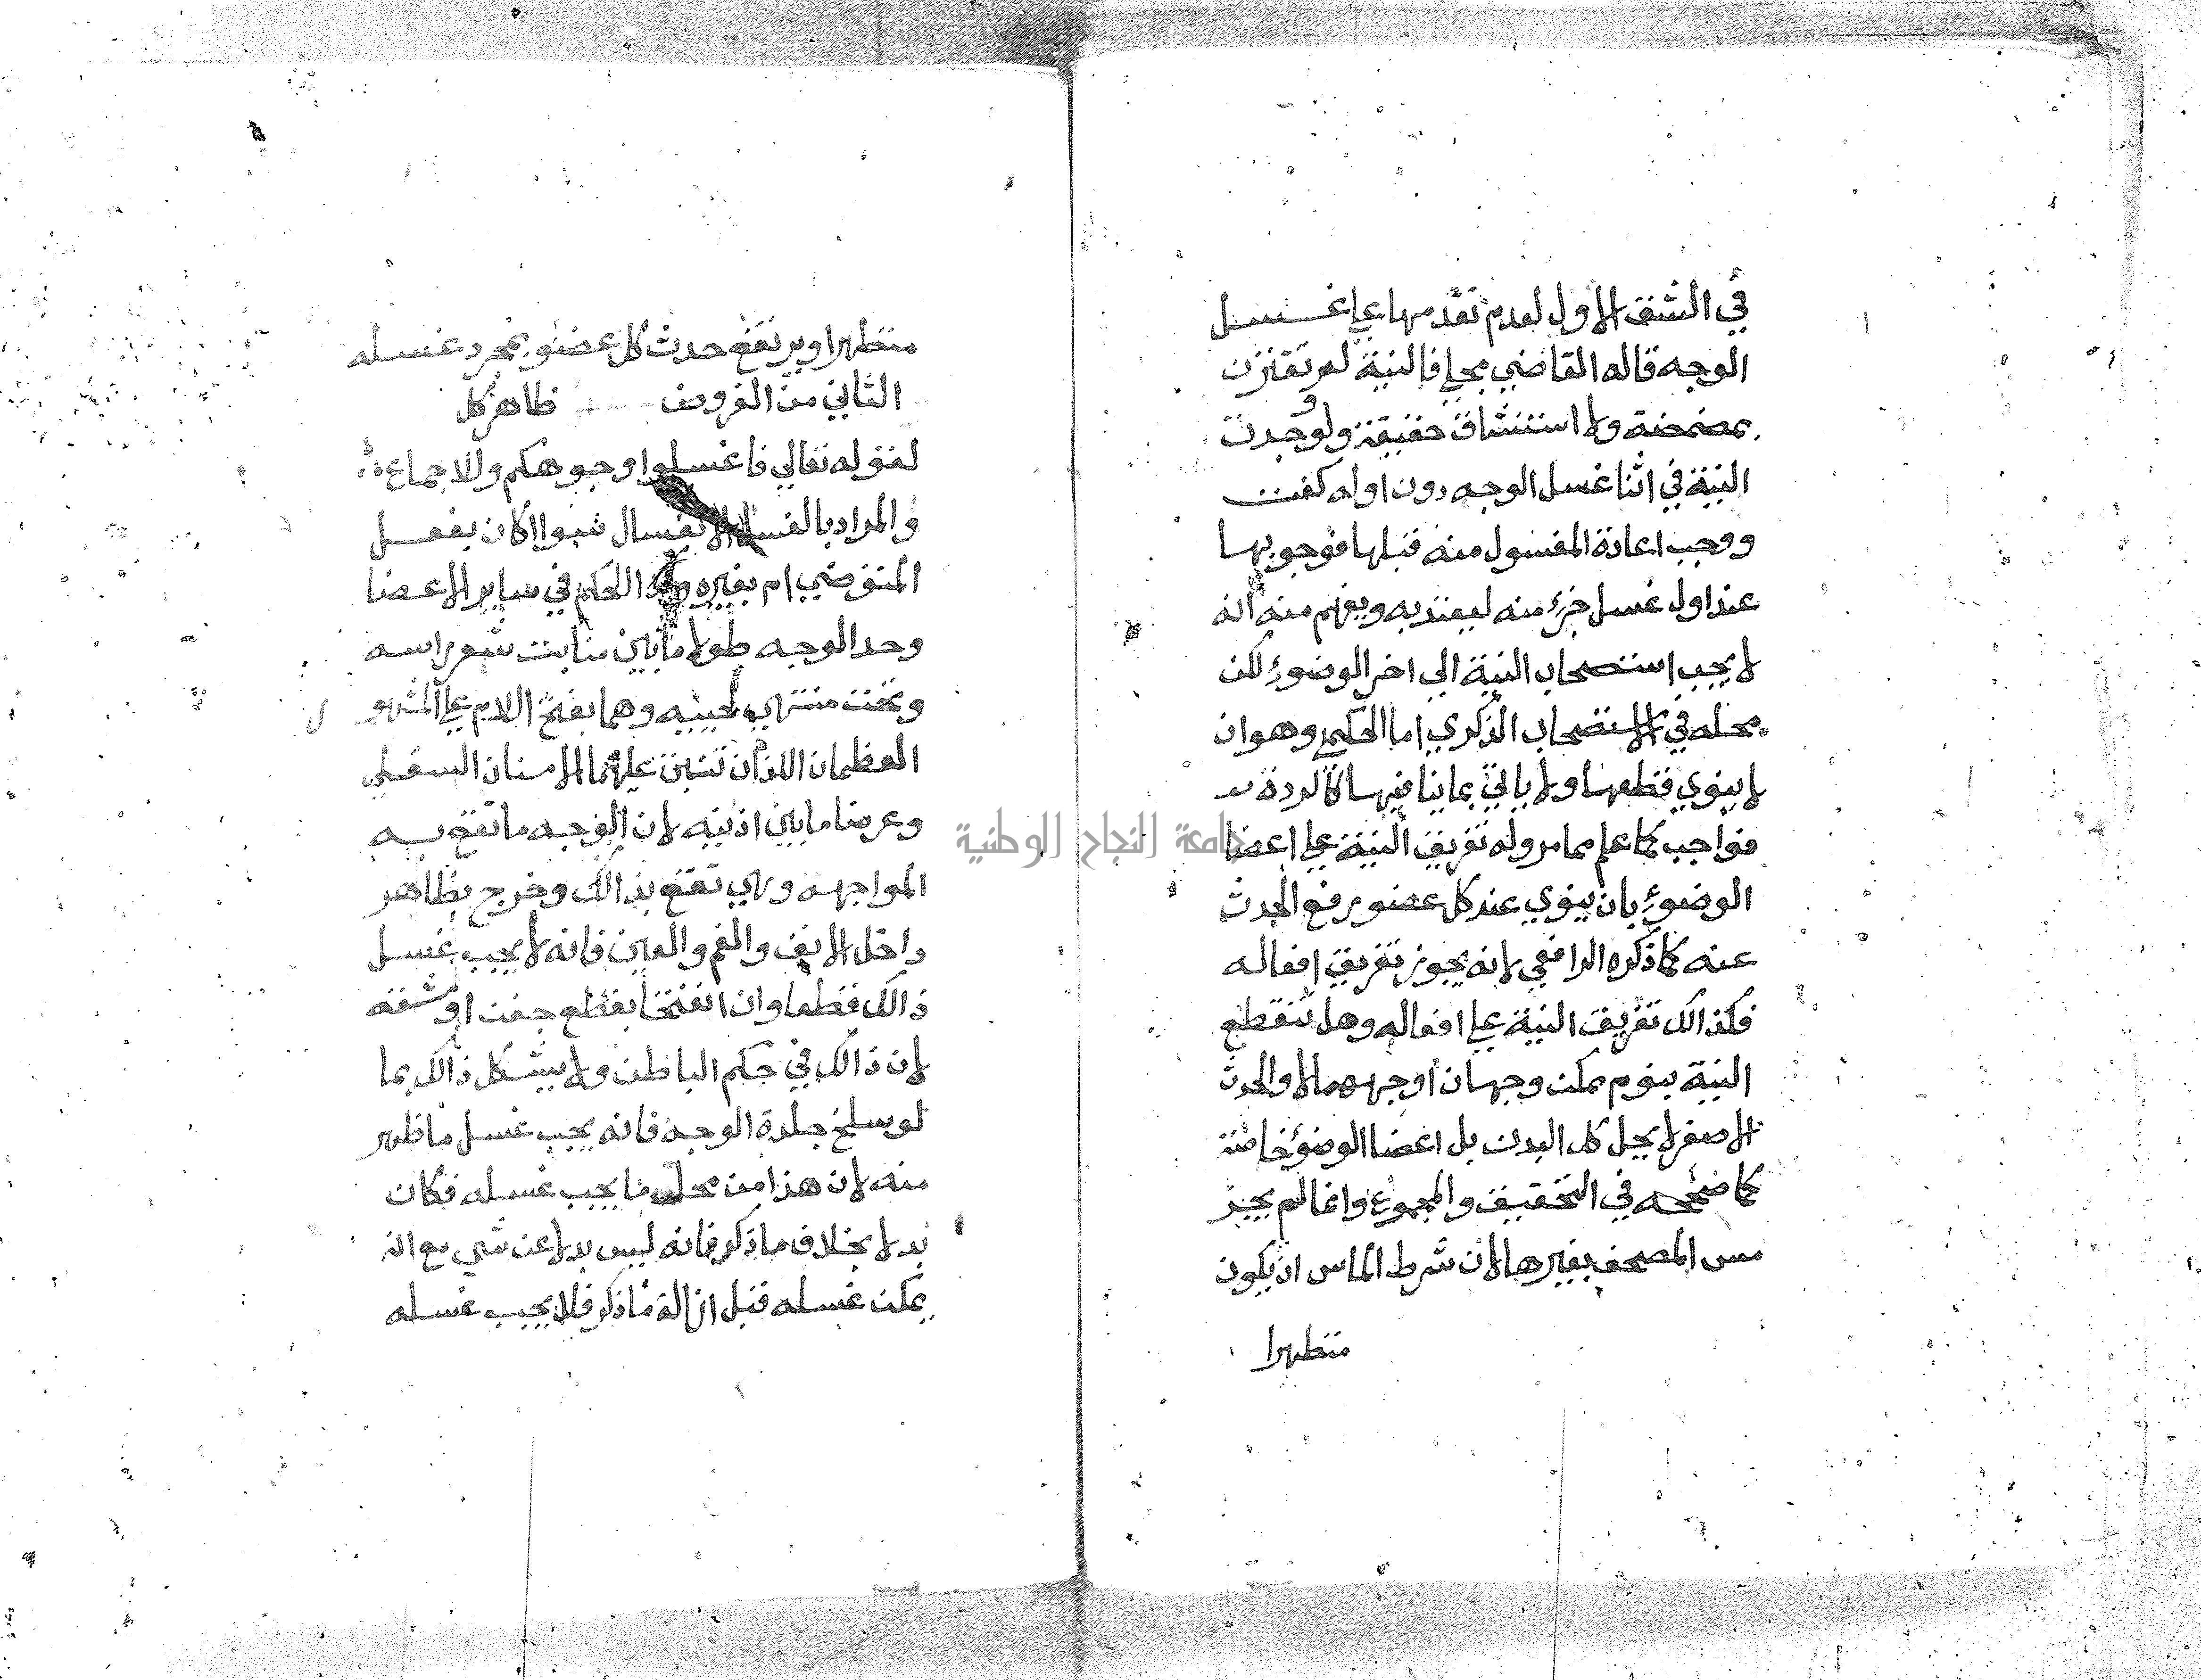 في الشق الاول لعدم تقدمها علي غسل
الوجه قاله القاضي مجلي فالنية لم تقترن
بمضمضة ولا استنشاق حقيقة ولو وجدت
النية في اثنا غسل الوجه دون اوله كفت
ووجب اعادة المغسول منه قبلها فوجوبها
عند اول غسل جزء منه ليعتد به ويفهم منه انه
لا يجب استصحاب النية الي اخر الوضوء لكن
محله في الاستصحاب الذكري اما الحكمي وهو ان
لا ينوي قطعها ولا ياتي بما ينافيها كالردة
فواجب كما علم مما مر وله تفريق النية علي اعضا
الوضوء بان ينوي عند كل عضو رفع الحدث
عنه كما ذكره الرافعي لانه يجوز تفريق افعاله
فكذالك تفريق النية علي افعاله وهل تنقطع
النية بنوم ممكن وجهان اوجههما لا والحدث
الاصغر لا يحل كل البدن بل اعضا الوضوء خاصة
كما صححه في التحقيق والمجموع وانما لم يجز
مس المصحف بغيرها لان شرط الماس ان يكون
متطهرا
متطهرا ويرتفع حدث كل عضو بمجرد غسله
الثاني من الفروض ظاهر كل
لقوله تعالي فاغسلوا وجوهكم وللاجماع
والمراد بالغسل الانغسال سوا اكان بفعل
المتوضي ام بغيره وكذا الحكم في ساير الاعضا
وحد الوجه طولا ما بين منابت شعر راسه
وتحت منتهي لحييه وهما بفتح اللام علي المشهور
العظمان اللذان تنبت عليهما الاسنان السفلي
وعرضا ما بين اذنيه لان الوجه ما تقع به
المواجهه وهي تقع بذالك وخرج بظاهر
داخل الانف والفم والعين فانه لا يجب غسل
ذالك قطعا وان انفتحا بقطع جفن او شفة
لان ذالك في حكم الباطن ولا يشكل ذالك بما
لو سلخ جلدة الوجه فانه يجب غسل ما ظهر
منه لان هذا من محل ما يجب غسله فكان
بدلا بخلاف ما ذكر فانه ليس بدلا عن شي مع انه
يمكن غسله قبل ازالة ما ذكر فلا يجب غسله
جامعة النجاح الوطنية